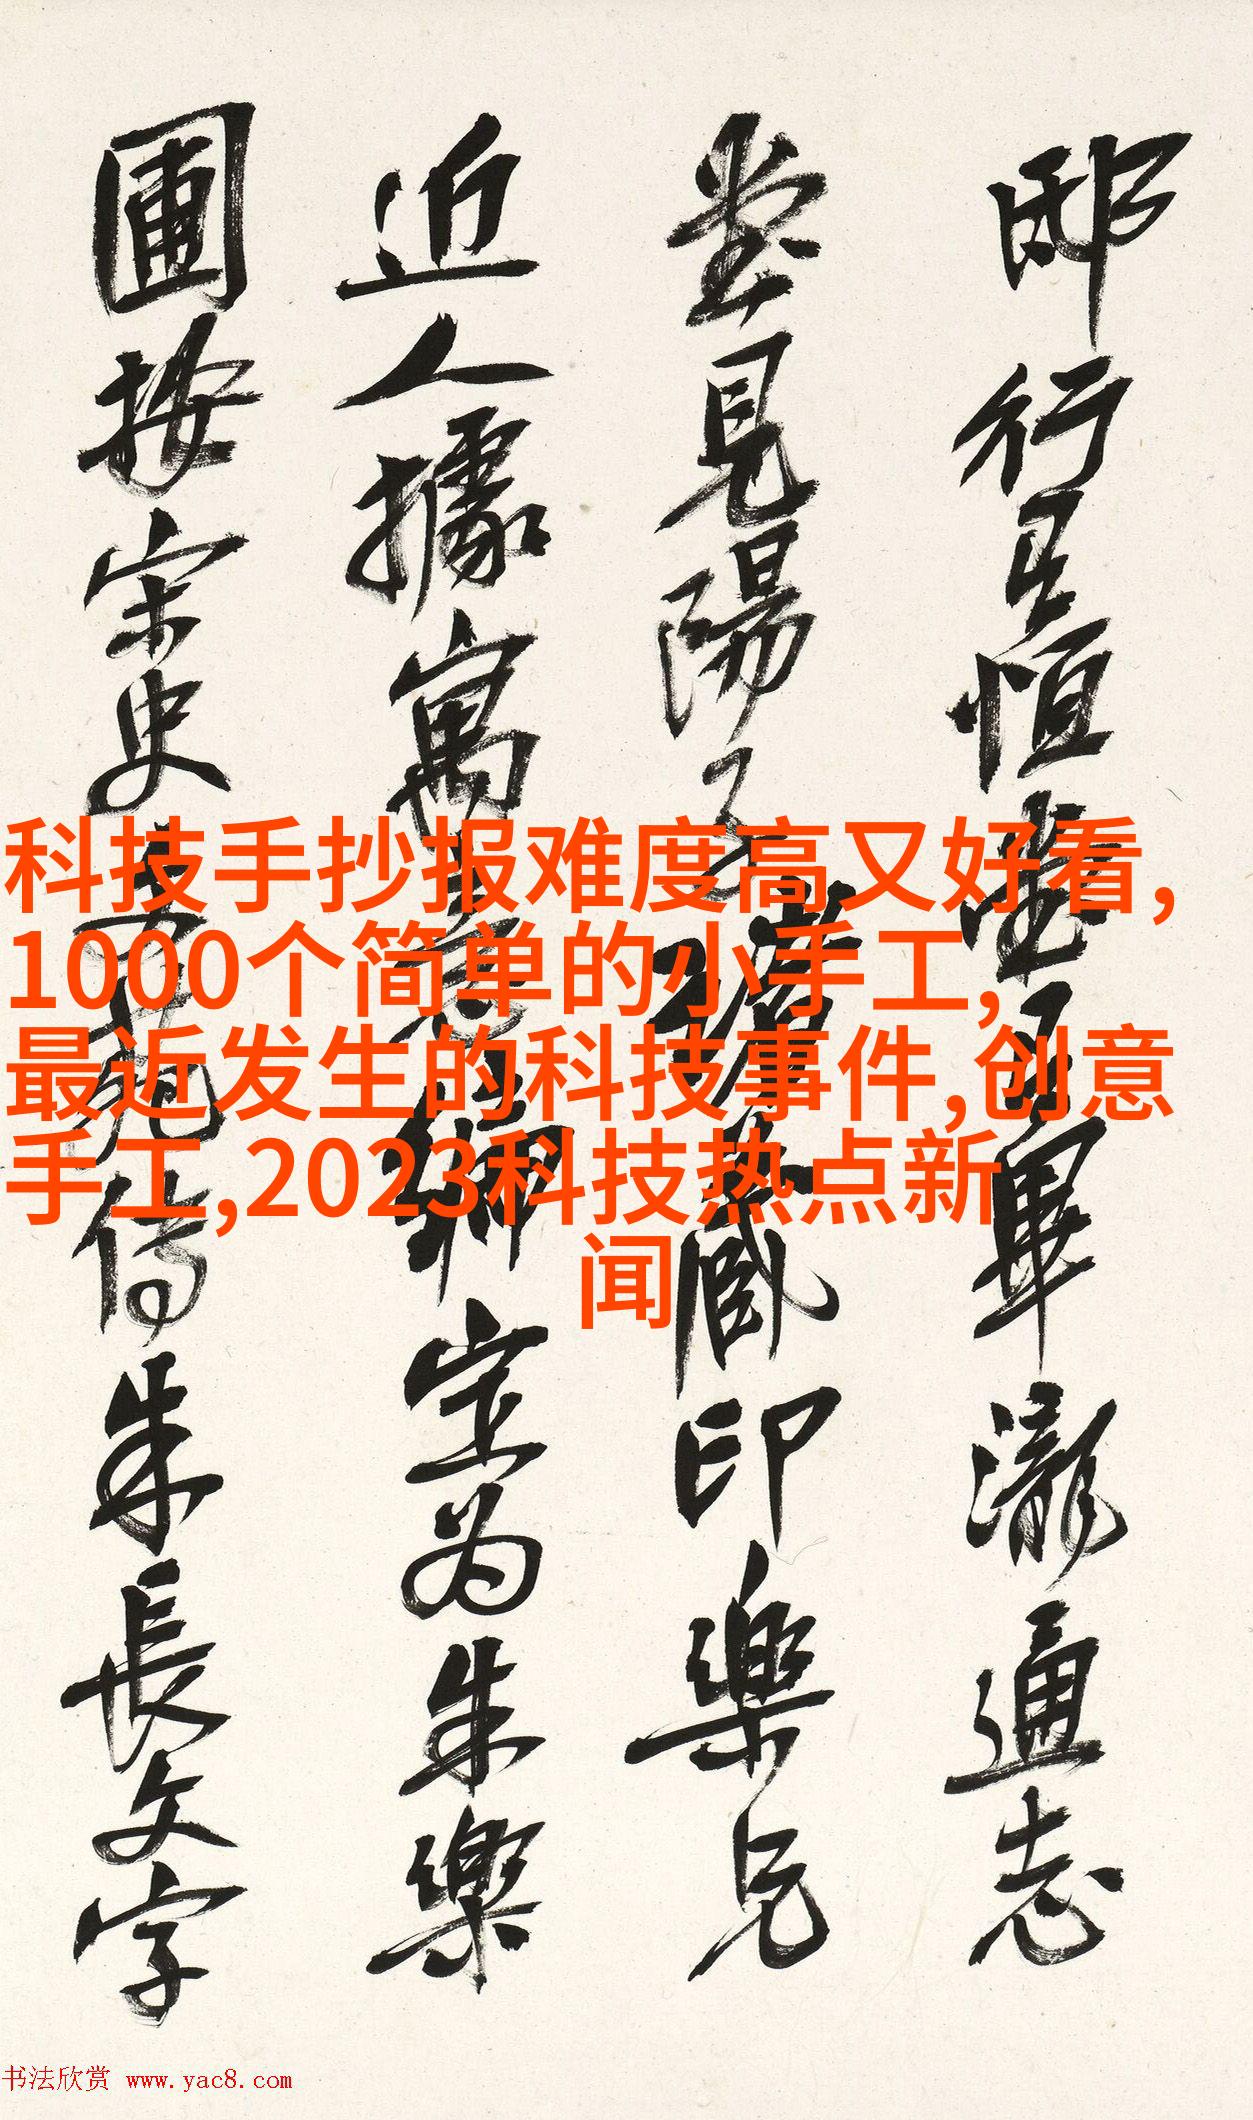 科技手抄报难度高又好看,
1000个简单的小手工,
最近发生的科技事件,创意
手工,2023科技热点新
闻
邸行
恒
畢瀧通志
堂見陽子
藏印樂兄
近人據寓意編定为朱樂
圃按宋史文苑傳朱長文字
书法欣赏 www.yac8.com